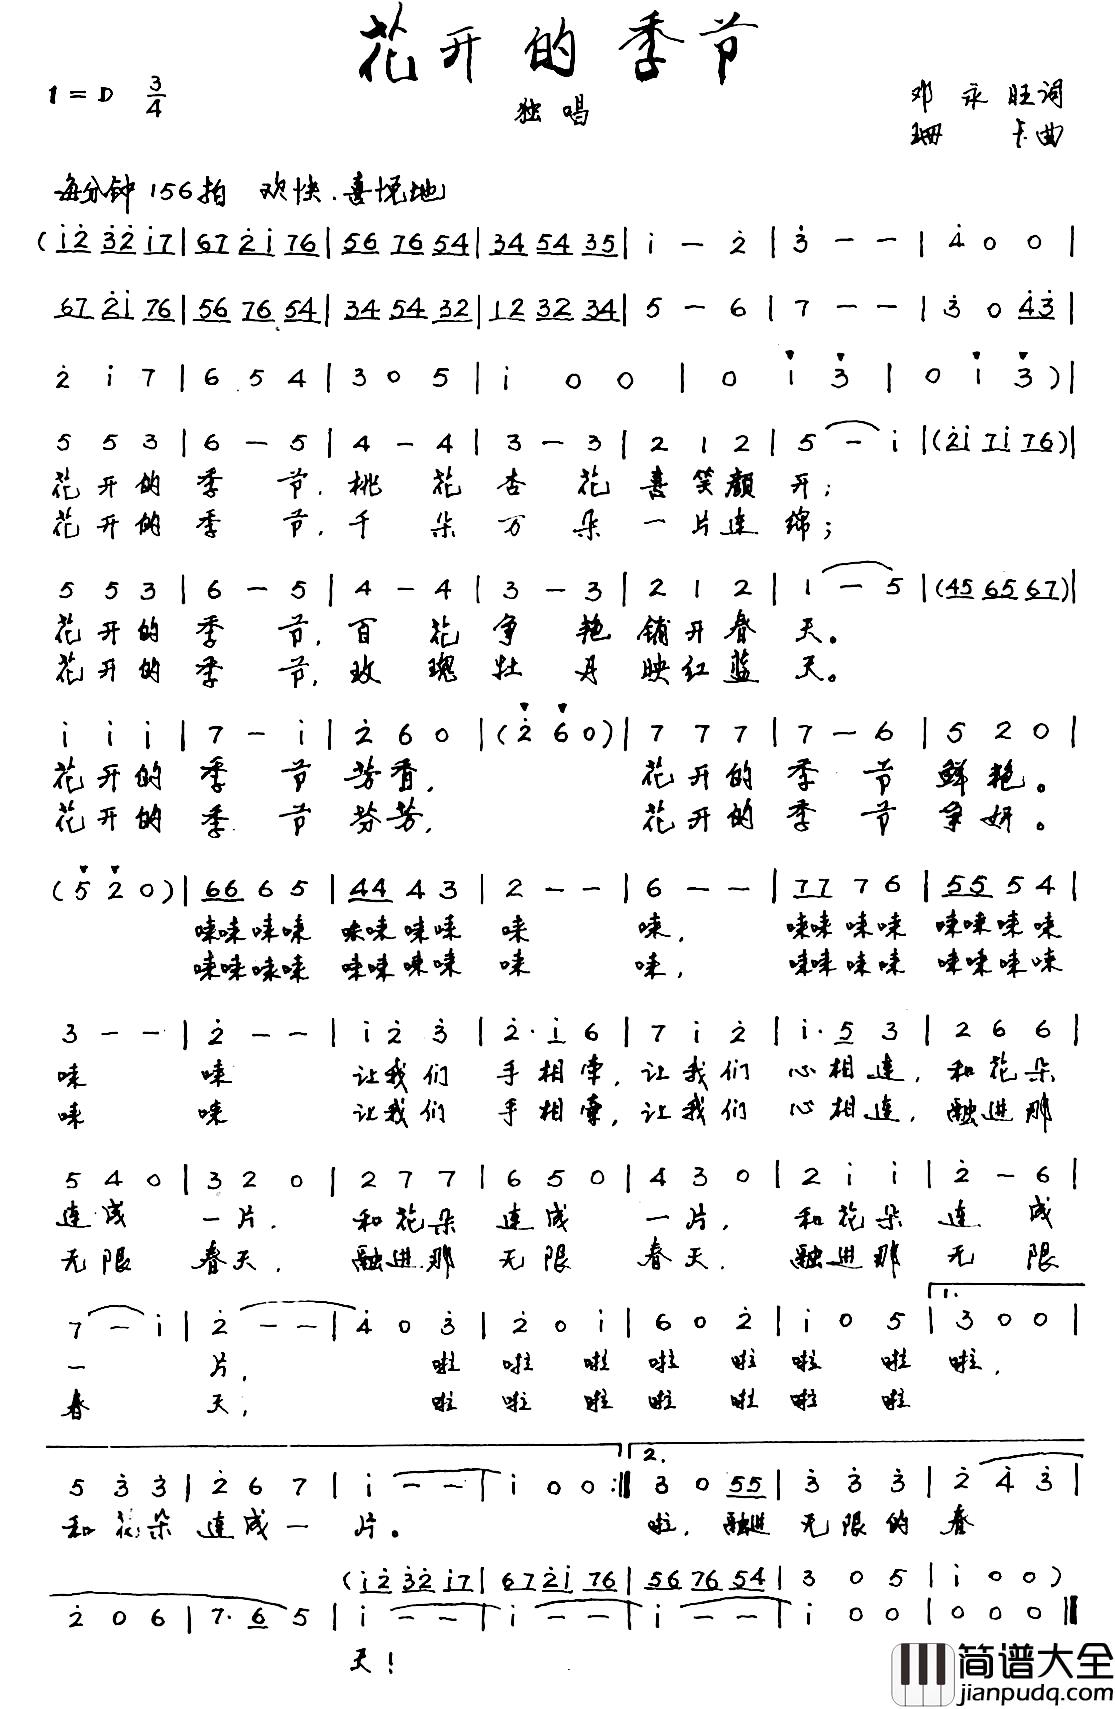 花开的季节
1=D 3/4
独唱
邓永旺词
珊卡曲
每分钟156拍 欢快.喜悦地
(i̇2̇ 3̇2̇ i̇7|67 2̇i̇ 76|56 76 54|34 54 35|i̇ − 2̇|3̇ − −|4̇ 0 0|
67 2̇i̇ 76|56 76 54|34 54 32|12 32 34|5 − 6|7 − −|3̇ 0 4̇3̇|
2̇ i̇ 7|6 5 4|3 0 5|i̇ 0 0|0 i̇ 3̇|0 i̇ 3̇)|
5 5 3|6 − 5|4 − 4|3 − 3|2 1 2|5 − i̇|(2̇i̇ 7i̇ 76)|
花开的季节,桃花杏花喜笑颜开;
花开的季节,千朵万朵一片连绵;
5 5 3|6 − 5|4 − 4|3 − 3|2 1 2|1 − 5|(45 65 67)|
花开的季节,百花争艳铺开春天。
花开的季节,玫瑰牡丹映红蓝天。
i̇ i̇ i̇|7 − i̇|2̇ 6 0|(2̇ 6 0)|7 7 7|7 − 6|5 2 0|
花开的季节芳香, 花开的季节鲜艳。
花开的季节芬芳, 花开的季节争妍。
(5 2 0)|66 6 5|44 4 3|2 − −|6 − −|77 7 6|55 5 4|
唻唻唻唻 唻唻唻唻 唻 唻, 唻唻唻唻 唻唻唻唻
唻唻唻唻 唻唻唻唻 唻 唻, 唻唻唻唻 唻唻唻唻
3 − −|2̇ − −|i̇ 2̇ 3̇|2̇· i̇ 6|7 i̇ 2̇|i̇· 5 3|2 6 6|
唻 唻 让我们手相牵,让我们心相连,和花朵
唻 唻 让我们手相牵,让我们心相连,融进那
5 4 0|3 2 0|2 7 7|6 5 0|4 3 0|2 i̇ i̇|2̇ − 6|
连成一片,和花朵连成一片,和花朵连成
无限春天,融进那无限春天,融进那无限
7 − i̇|2̇ − −|4̇ 0 3̇|2̇ 0 i̇|6 0 2̇|i̇ 0 5|1. 3 0 0|
一片, 啦 啦 啦 啦 啦 啦 啦 啦,
春天, 啦 啦 啦 啦 啦 啦 啦
5 3̇ 3̇|2̇ 6 7|i̇ − −|i̇ 0 0:‖2. 3̇ 0 55|3̇ 3̇ 3̇|2̇ 4̇ 3̇|
和花朵连成一片。 啦,融进无限的春
(i̇2̇ 3̇2̇ i̇7|67 2̇i̇ 76|56 76 54|3 0 5|i̇ 0 0)
2̇ 0 6|7· 6 5|i̇ − −|i̇ − −|i̇ − −|i̇ 0 0|0 0 0‖
天!
简谱大全
jianpudq.com